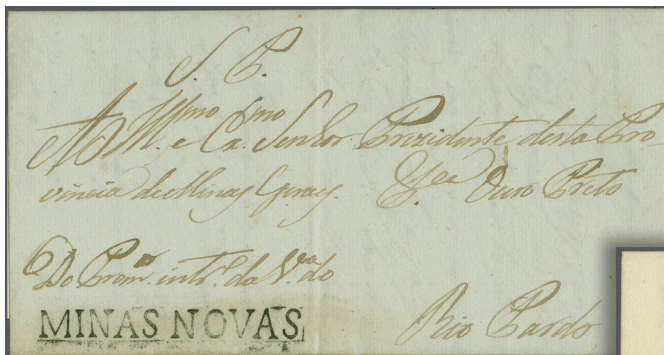 S. P.
Ao Illmo e Ex.mo Senhor Prezidente desta Pro
vincia de Minas Geraes. Ouro Preto
Do Prom.or intr.o da V.a do
Rio Pardo
MINAS NOVAS